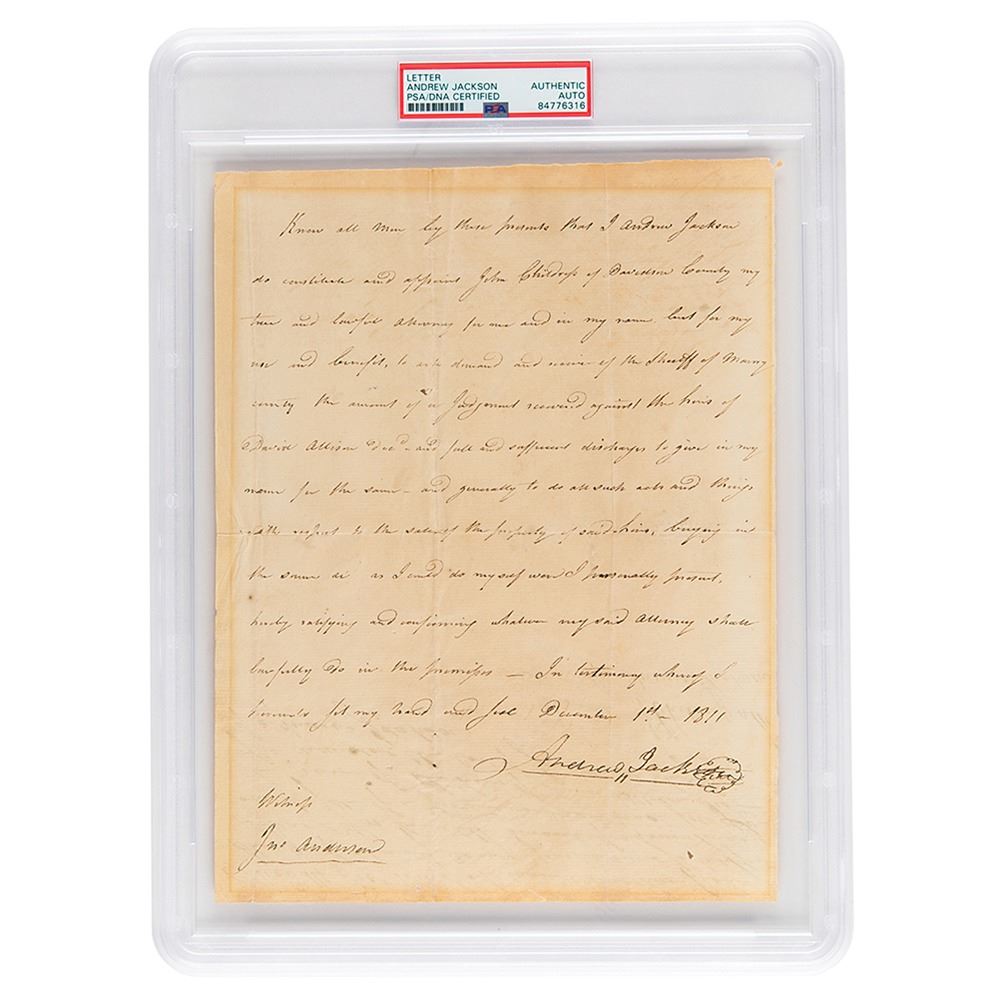 LETTER
ANDREW JACKSON
PSA/DNA CERTIFIED
AUTHENTIC
AUTO
84776316
PSA
Know all men by these presents that I Andrew Jackson
do constitute and appoint John Childress of Davidson County my
true and lawful attorney for me and in my name, but for my
use and benefit, to ask demand and receive of the Sheriff of Maury
county the amount of a Judgement recovered against the heirs of
David Allison Decd- and full and sufficient discharges to give in my
name for the same - and generally to do all such acts and things
with respect to the sale of the property of said heirs, buying in
the same &c as I could do myself were I personally present,
hereby ratifying and confirming whatever my said Attorney shall
lawfully do in the premises — In testimony whereof I
hereunto set my hand and seal December 1st - 1811
Andrew Jackson
Witness
Jno Anderson